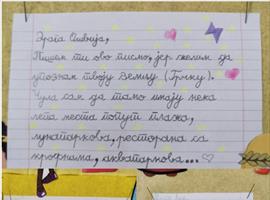 Драга Силвија,
Пишем ти ово писмо, јер желим да
упознам твоју земљу (Грчку).
Чула сам да тамо имају нека
лепа места попут плажа,
лунапаркова, ресторана са
крофнама, аквапаркова...